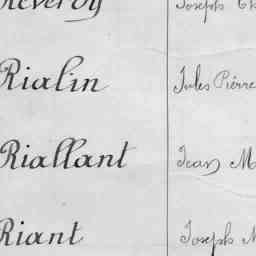 Reverdy Joseph
Rialin Jules Pierre
Riallant Jean M
Riant Joseph M